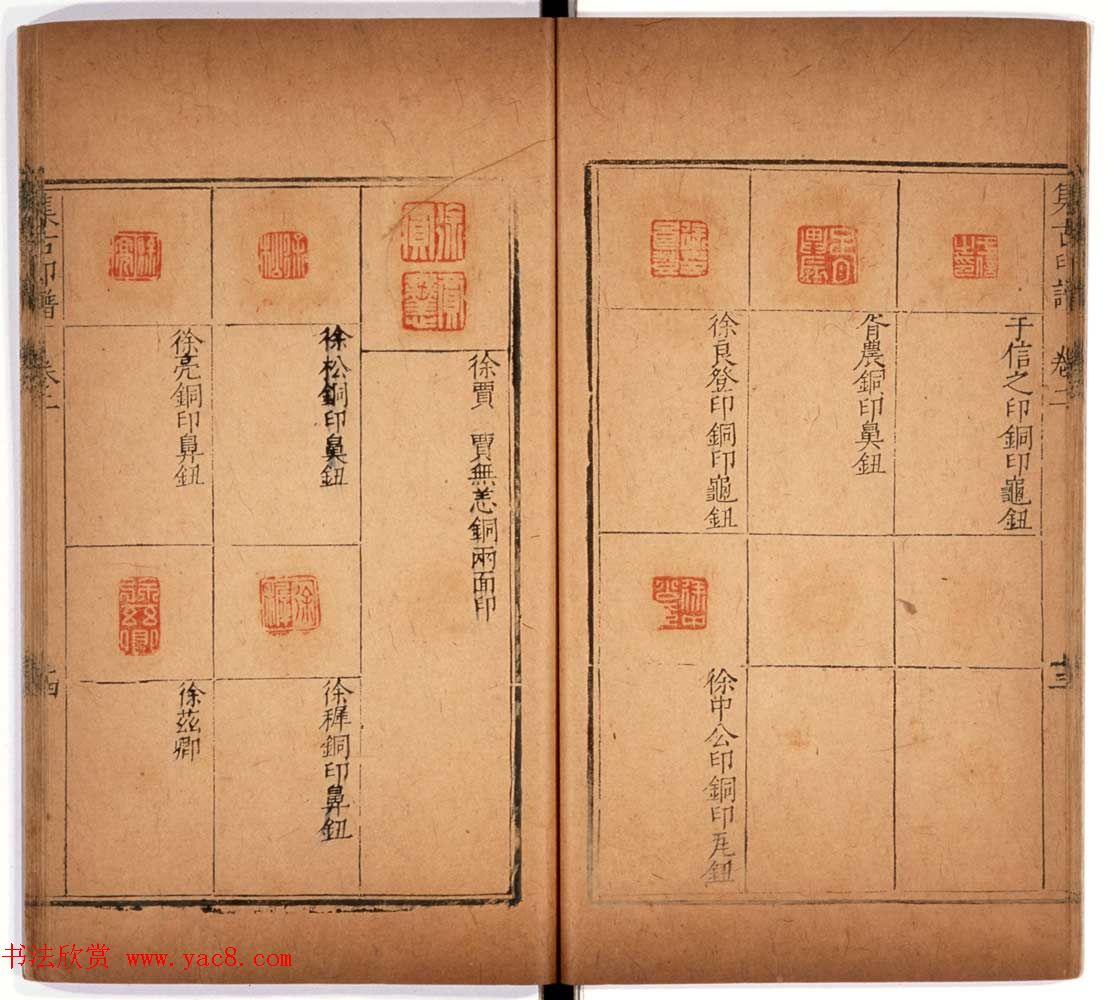 集古印譜 卷二 十三
于信之印銅印龜鈕
胥農銅印鼻鈕
徐良登印銅印龜鈕
徐中公印銅印瓦鈕
徐賈 賈無恙銅兩面印
徐松銅印鼻鈕
徐穉銅印鼻鈕
徐亮銅印鼻鈕
徐茲卿
集古印譜 卷二 十四
书法欣赏 www.yac8.com